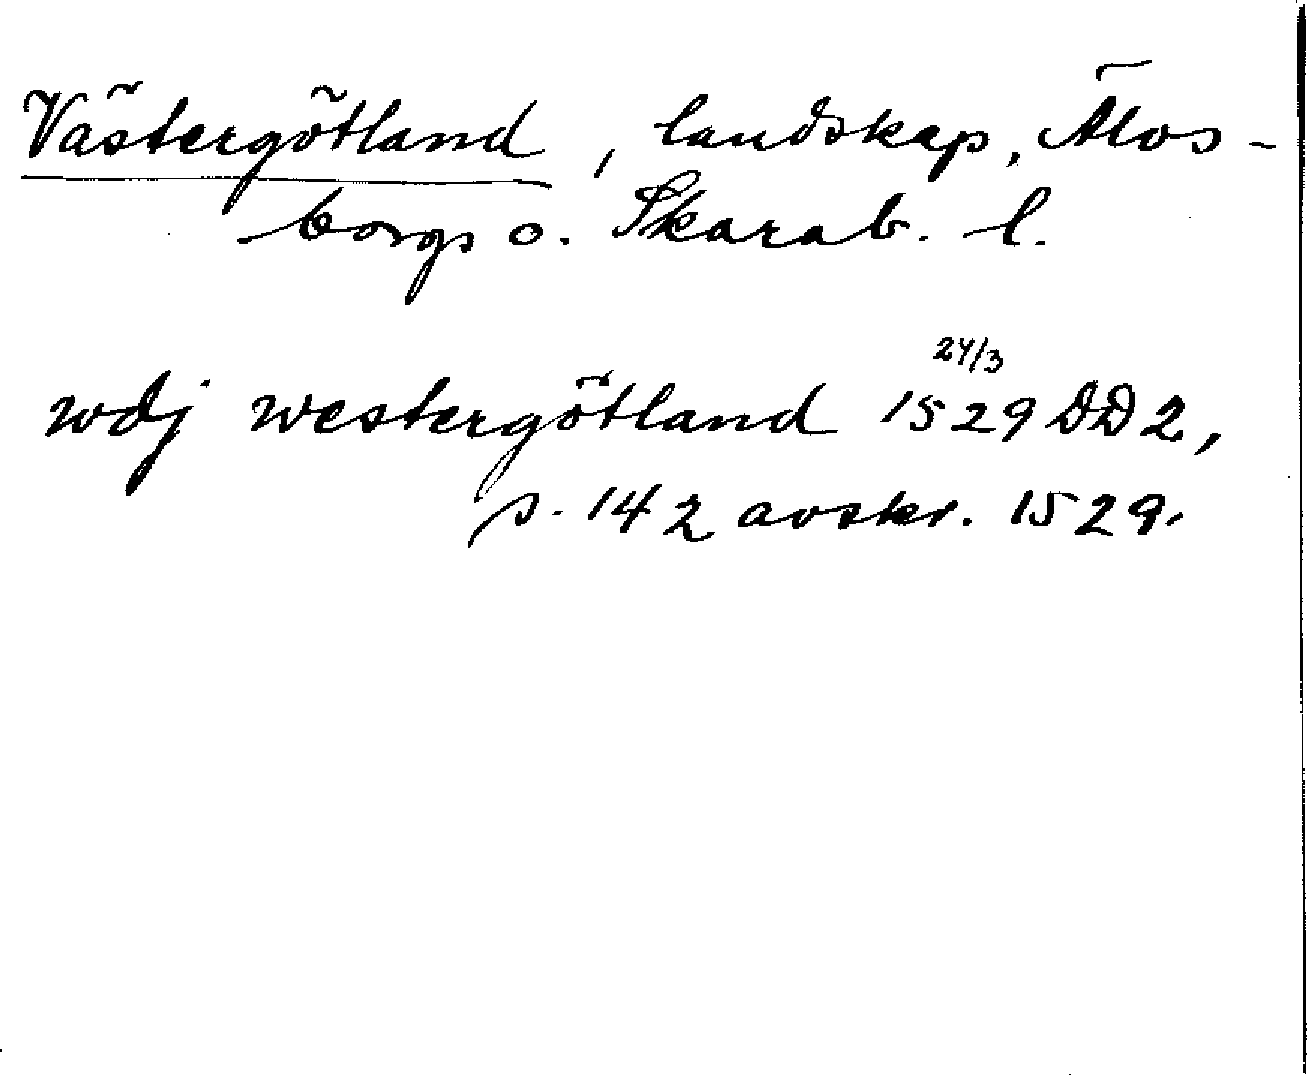 Västergötland, landskap, Älvs-
borgs o. Skarab. l.
wdj westergötland 24/3 1529 DD2,
s. 142 avskr. 1529.